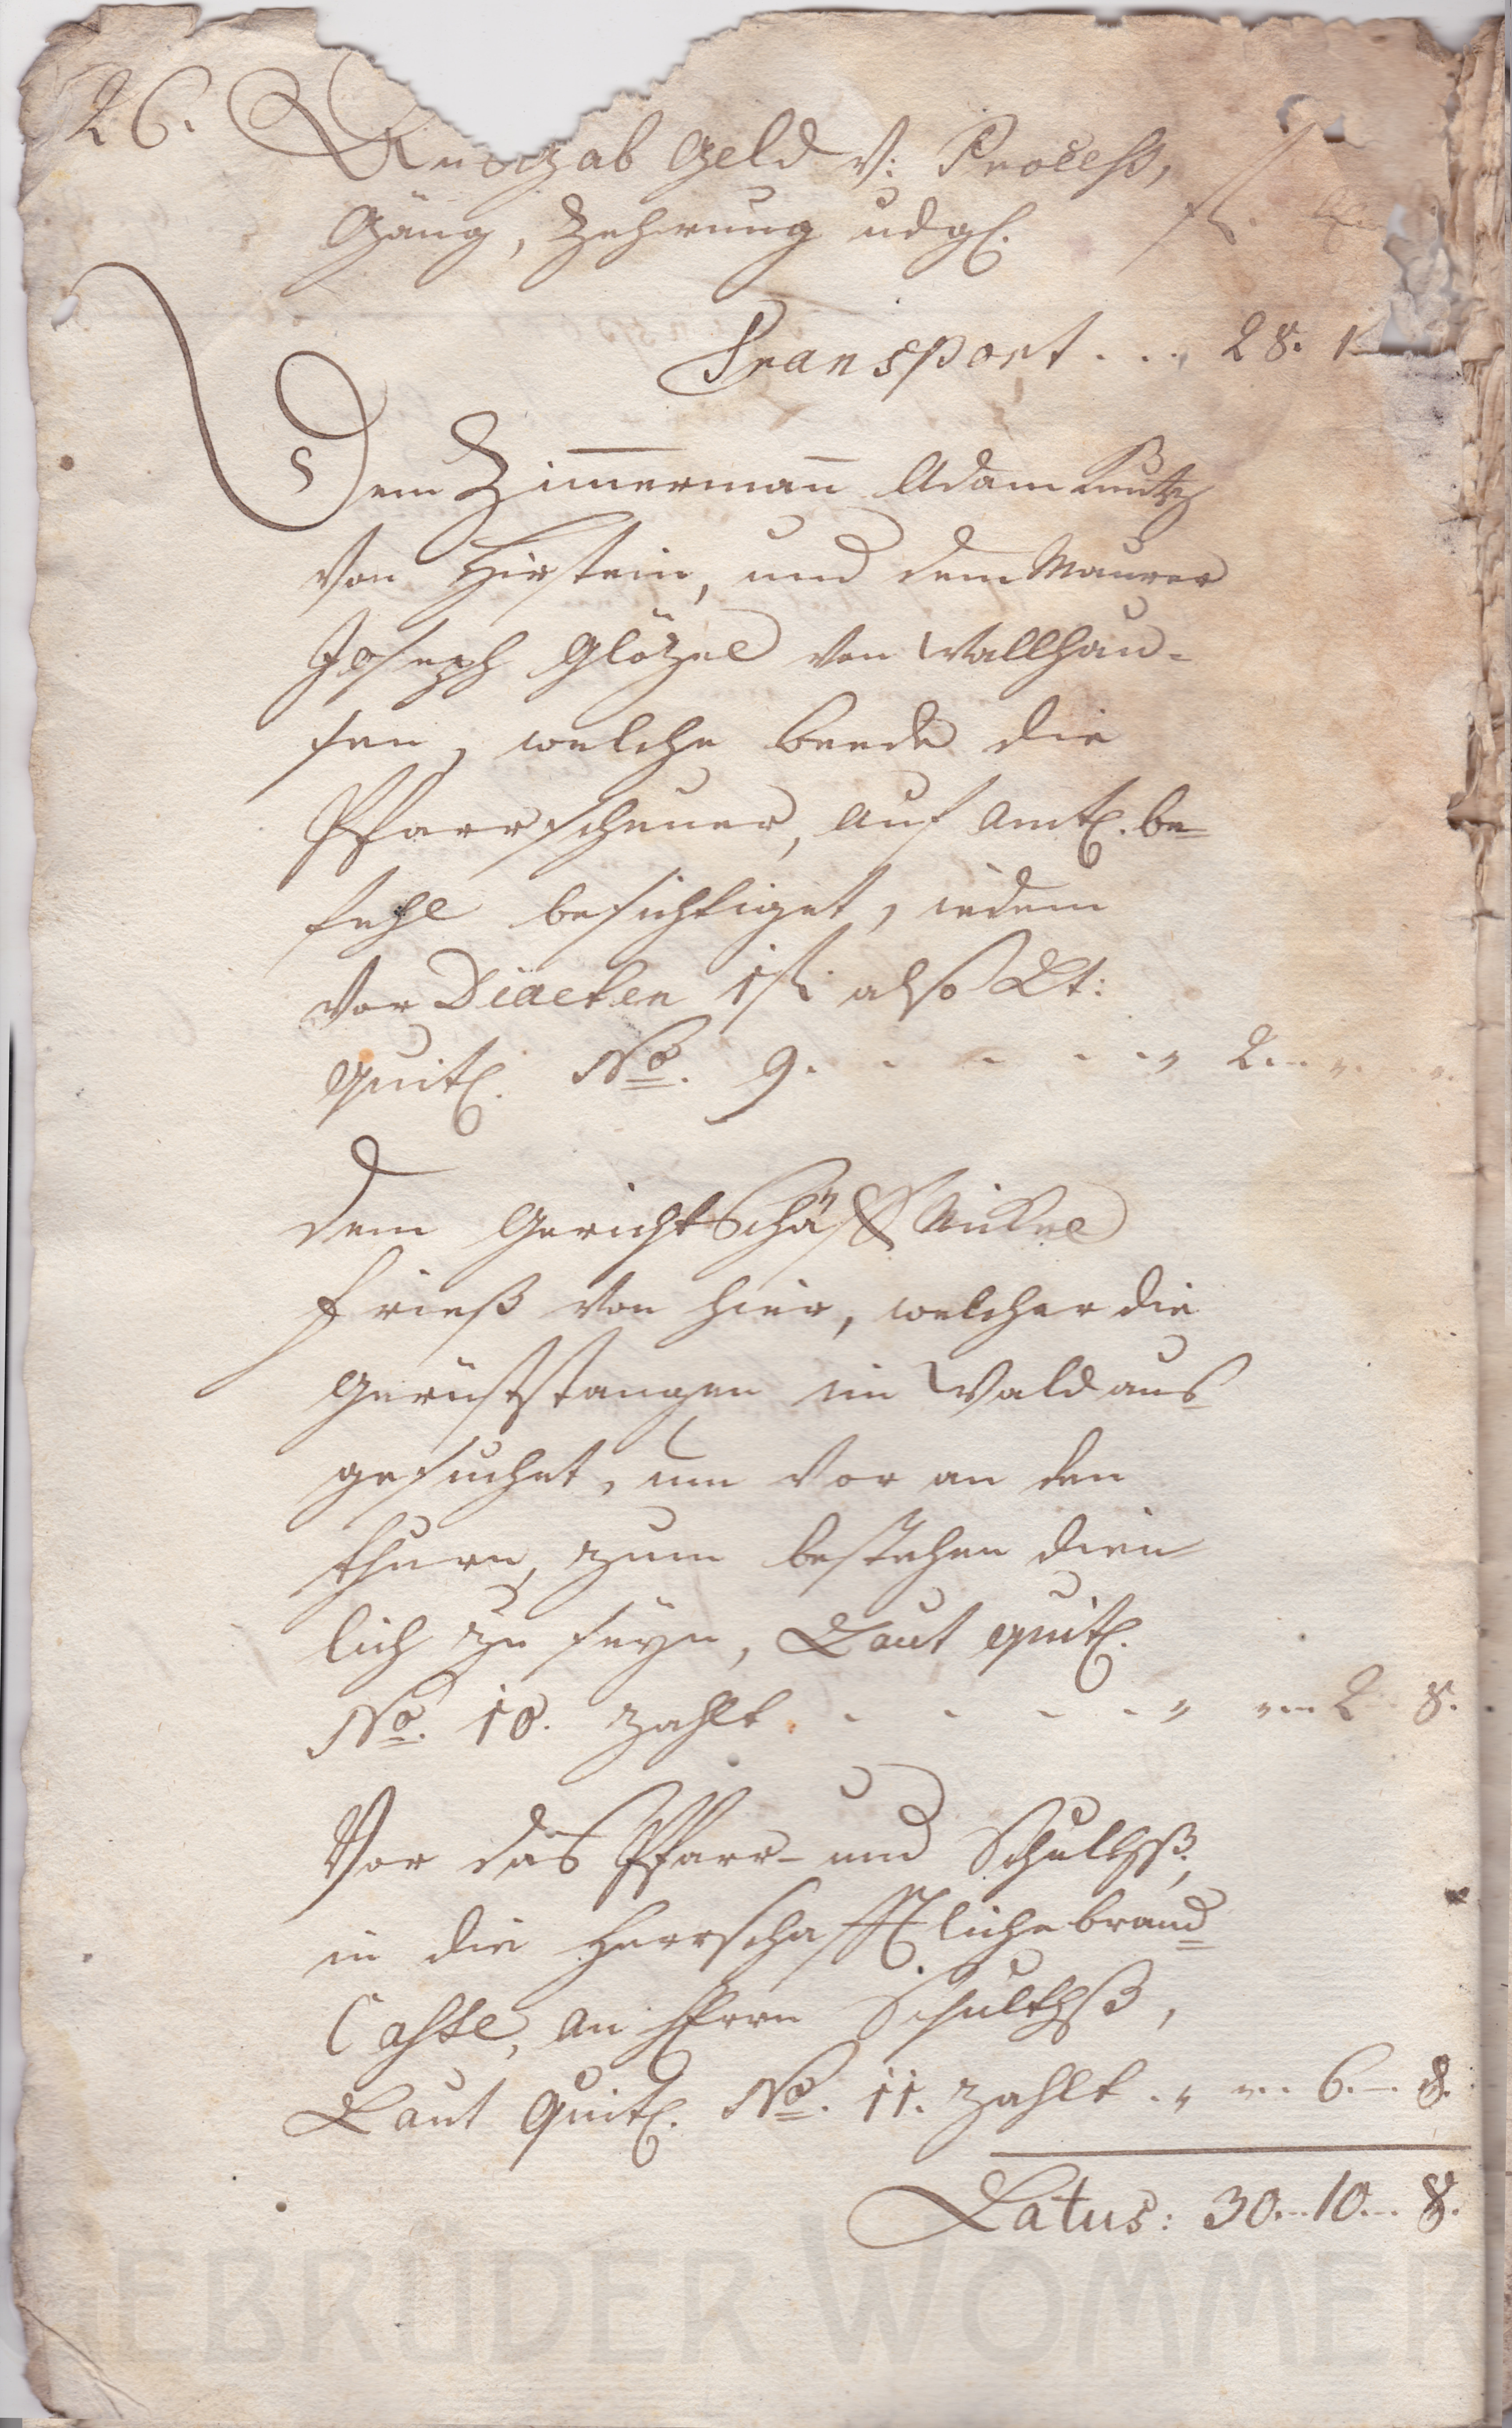 26.
Ausgab Geld v: Process,
Gäng, Zehrung udgl. fl.
Transport . . . 28. 1
Dem Zimmermann Adam
von Hirstein, und dem Maurer
Joseph Glözel von Wallhau-
sen, welche beede die
Pfarrscheuer, auf Amtl. be-
fehl besichtiget, iedem
vor Diaeten 1 fl. also Lt:
quitl. No. 9. - - - - " 2. - " - "
Dem Gerichtschöff Nickel
Frieß von hier, welcher die
Gerüststangen im Wald aus-
gesuchet, um vor an den
thurn, zum bestehen dien-
lich zu seyn, Laut quitl.
No. 10. zahlt. - - - - " " - 2 8.
Vor das Pfarr- und Schulhß.
in die Herrschafftliche brand-
Casse, an Herrn Schulthß,
Laut Quitl. No. 11. zahlt . " " - 6. - 8.
Latus: 30. - 10. - 8.
GEBRÜDER WOMMER